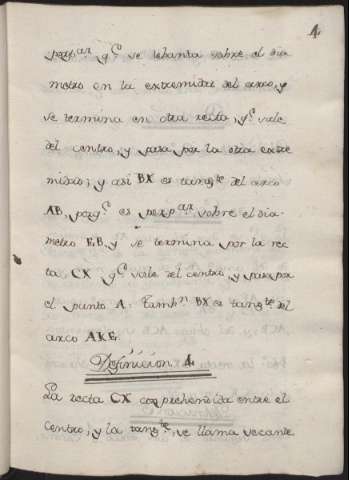 4
perp.ar q.e se lebanta sobre el dia
metro en la extremidad del arco, y
se termina en otra recta, q.e sale
del centro, y pasa por la otra extre
midad; y asi BX es tang.te del arco
AB, porq.e es perp.ar sobre el dia-
metro EB, y se termina por la rec
ta CX q.e sale del centro, y pasa por
el punto A. Tamb.n BX es tang.te del
arco AKE.
Definicion 4
La recta CX comprehendida entre el
centro, y la tang.te, se llama secante